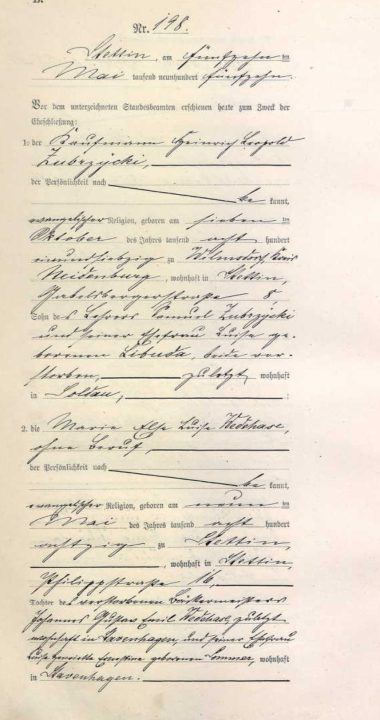 Nr. 198.
Stettin, am fünfzehnten
Mai tausend neunhundert fünfzehn.
Vor dem unterzeichneten Standesbeamten erschienen heute zum Zweck der
Eheschließung:
1. der Kaufmann Heinrich Leopold
Zubrzycki,
der Persönlichkeit nach
be kannt,
evangelischer Religion, geboren am sieben ten
Oktober des Jahres tausend acht hundert
einundsiebzig zu Wilmsdorf, Kreis
Neidenburg, wohnhaft in Stettin,
Gabelsbergerstraße 8,
Sohn des Lehrers Samuel Zubrzycki
und seiner Ehefrau Luise ge-
borenen Libuda, beide ver-
storben, zuletzt wohnhaft
in Soldau, ;
2. die Marie Else Luise
ohne Beruf,
der Persönlichkeit nach
be kannt,
evangelischer Religion, geboren am neun ten
Mai des Jahres tausend acht hundert
achtzig zu Stettin,
, wohnhaft in Stettin,
Philippstraße 16,
Tochter des verstorbenen Bäckermeisters
Johannes Gustav Emil zuletzt
wohnhaft in Stavenhagen, und seiner Ehefrau
Luise Henriette Ernestine geborenen Sommer, wohnhaft
in Stavenhagen.